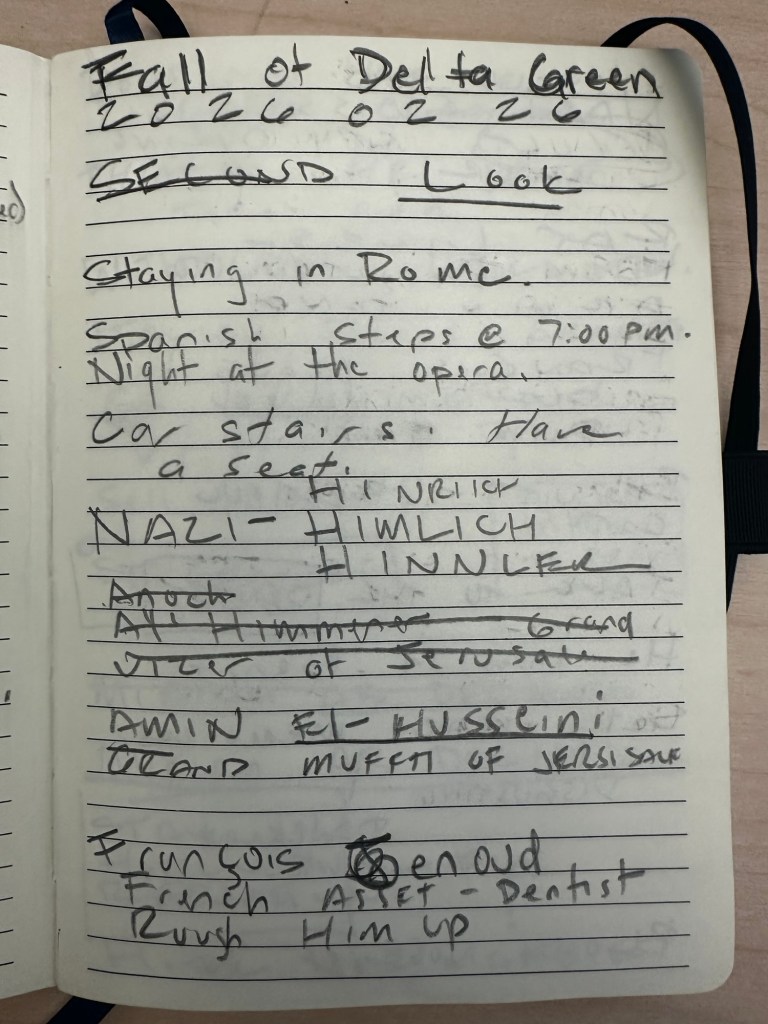 Fall of Delta Green
2026 02 26
SECOND Look
Staying in Rome.
Spanish Steps @ 7:00 pm.
Night at the opera.
Car stairs. Have
a seat.
HINRIICH
NAZI- HIMLICH
HINNLER
Anoch
Grand
Vizer of Jerusale
AMIN El-HUSSEini
GRAND MUFFTI OF JERSISALE
François Genoud
French ASSET - Dentist
Ruugh Him up